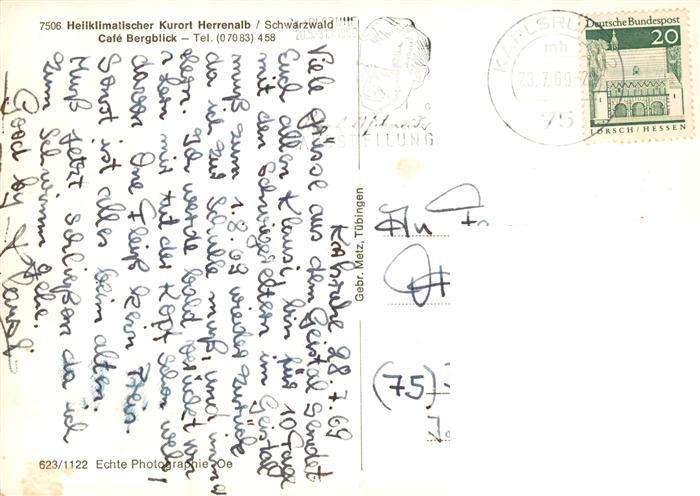 7506 Heilklimatischer Kurort Herrenalb / Schwarzwald
Café Bergblick – Tel. (07083) 458
Karlsruhe 28.7.69
Viele Grüsse aus dem Geistal sendet
Euch allen Klausi, bin für 10 Tage
mit den Schwiegereltern im Geistal
muß zum 1.8.69 wieder zurück
da ich zur Schule muß, und
lern. Ich werde bald verückt vor
lern mir tut der Kopf schon weh!
davon One Fleiß kein Preis.
Sonst ist alles beim alten.
Muß jetzt schließen da ich
zum Schwimm gehe.
Good by Klausi
623/1122 Echte Photographie Oe
Gebr. Metz, Tübingen
AUSSTELLUNG
KARLSRU
mh
23.7.69
75
Deutsche Bundespost
20
LORSCH/HESSEN
An
(75)